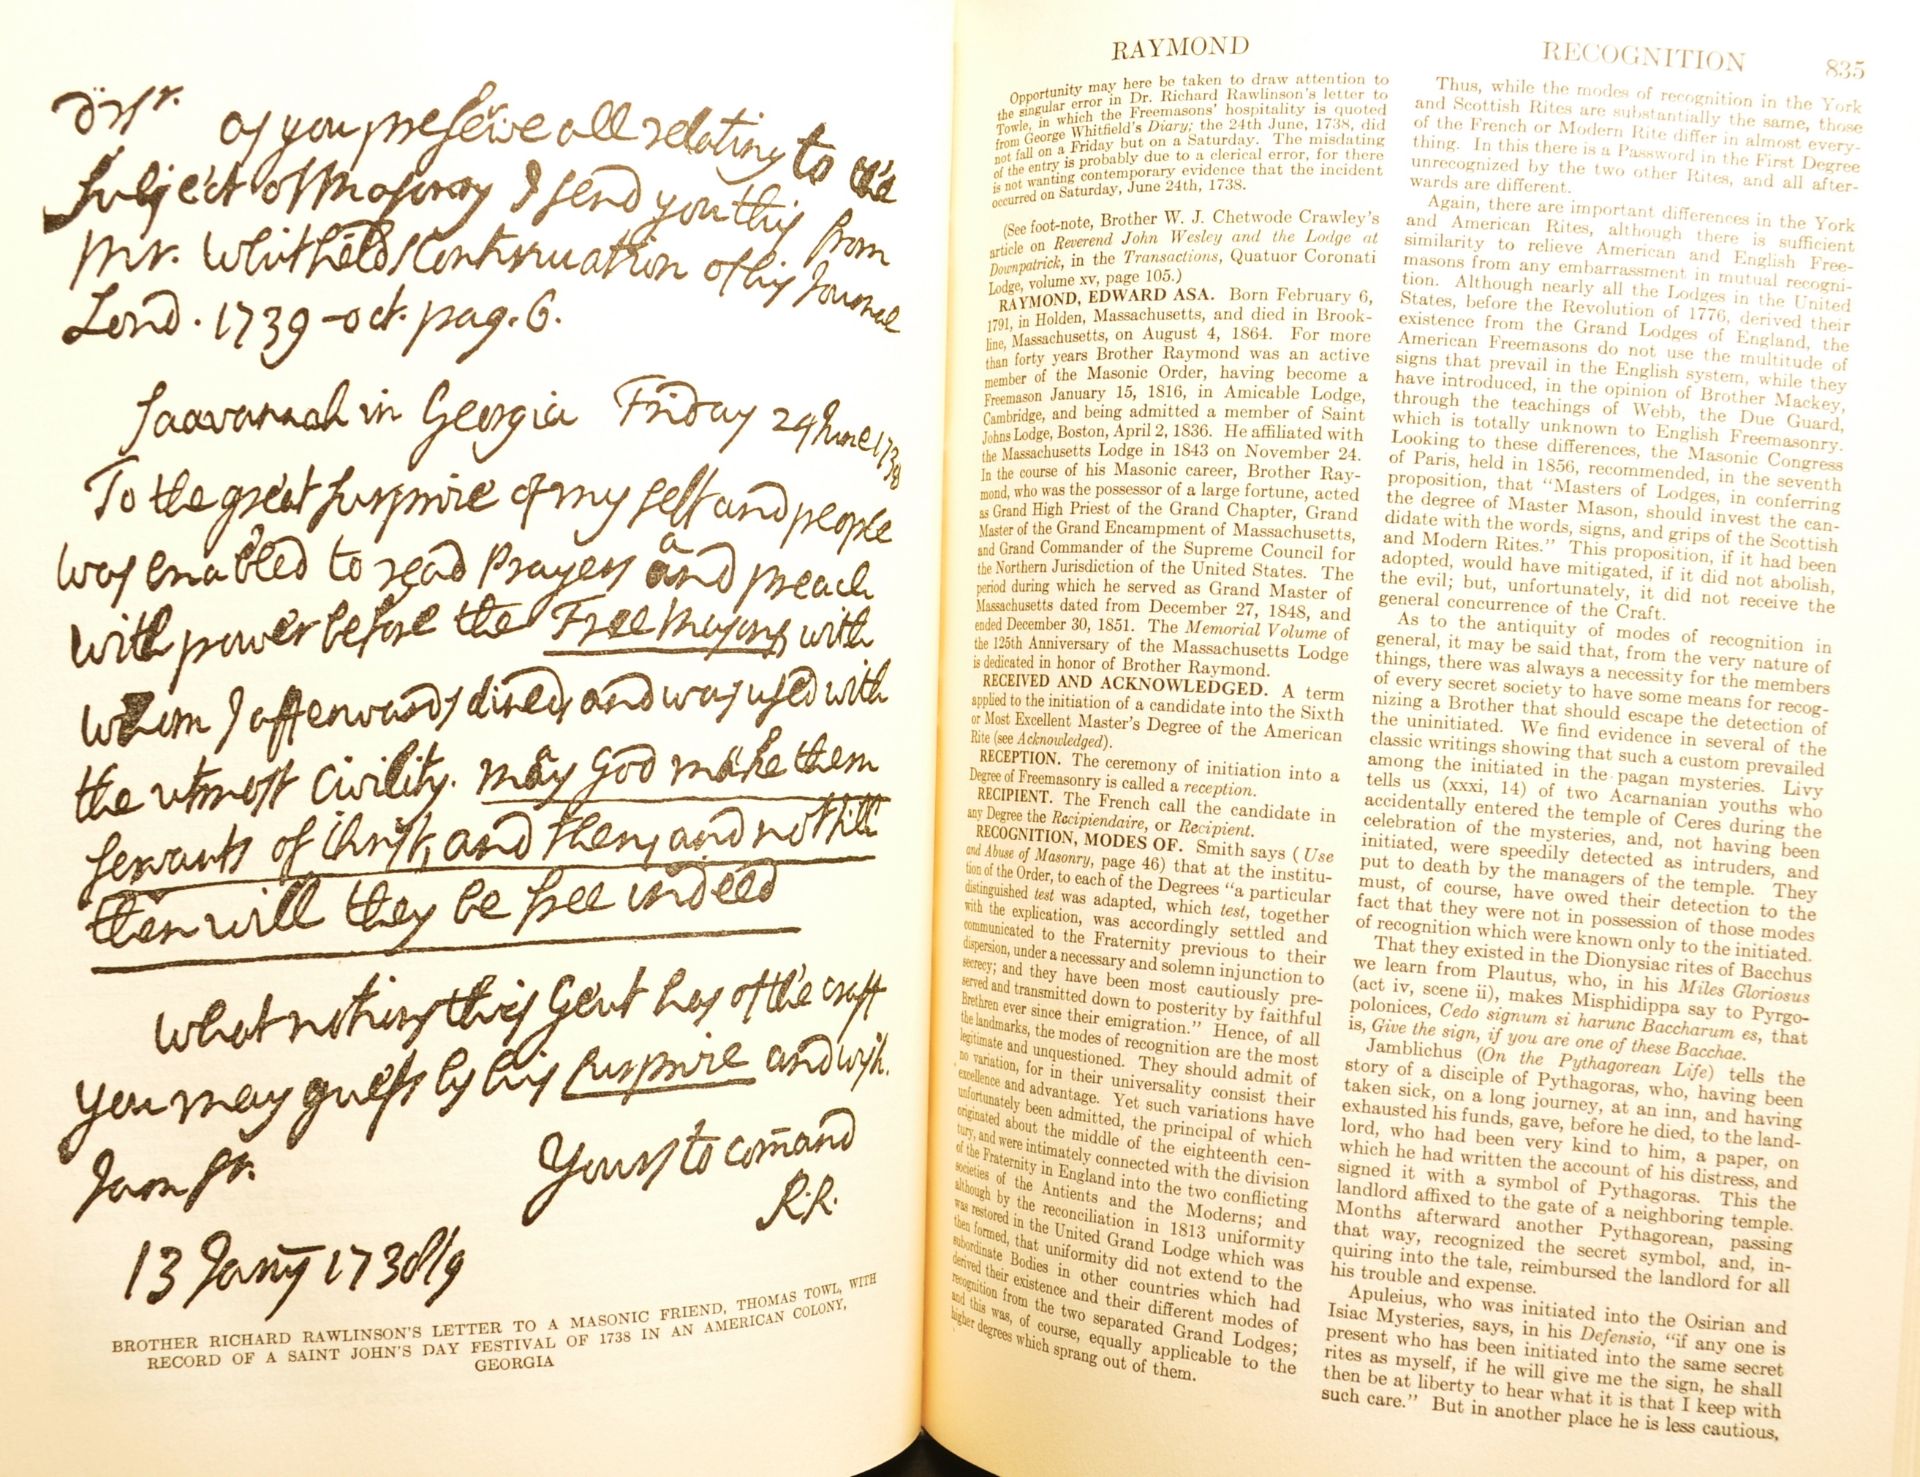 Dr Sr.
as you preserve all relating to the
Subject of Masonry I send you this from
Mr. Whitfields Continuation of his Journal
Lond. 1739 - oct. pag. 6.
Saavannah in Georgia Friday 24 June 1738
To the great surprize of my self and people
was enabled to read Prayers and preach
with power before the Free Masons with
whom I afterwards dined, and was used with
the utmost Civility. may God make them
servants of Christ, and then, and not till
then will they be free indeed
What notions this Gent has of the craft
you may guess by his surprize and wish.
I am Sr.
Yours to comand
R.R.
13 Janry 1738/9
BROTHER RICHARD RAWLINSON'S LETTER TO A MASONIC FRIEND, THOMAS TOWL, WITH
RECORD OF A SAINT JOHN'S DAY FESTIVAL OF 1738 IN AN AMERICAN COLONY,
GEORGIA
RAYMOND
RECOGNITION
835
Opportunity may here be taken to draw attention to
the singular error in Dr. Richard Rawlinson's letter to
Towle, in which the Freemasons' hospitality is quoted
from George Whitfield's Diary; the 24th June, 1738, did
not fall on a Friday but on a Saturday. The misdating
of the entry is probably due to a clerical error, for there
is not wanting contemporary evidence that the incident
occurred on Saturday, June 24th, 1738.
(See foot-note, Brother W. J. Chetwode Crawley's
article on Reverend John Wesley and the Lodge at
Downpatrick, in the Transactions, Quatuor Coronati
Lodge, volume xv, page 105.)
RAYMOND, EDWARD ASA. Born February 6,
1791, in Holden, Massachusetts, and died in Brook-
line, Massachusetts, on August 4, 1864. For more
than forty years Brother Raymond was an active
member of the Masonic Order, having become a
Freemason January 15, 1816, in Amicable Lodge,
Cambridge, and being admitted a member of Saint
Johns Lodge, Boston, April 2, 1836. He affiliated with
the Massachusetts Lodge in 1843 on November 24.
In the course of his Masonic career, Brother Ray-
mond, who was the possessor of a large fortune, acted
as Grand High Priest of the Grand Chapter, Grand
Master of the Grand Encampment of Massachusetts,
and Grand Commander of the Supreme Council for
the Northern Jurisdiction of the United States. The
period during which he served as Grand Master of
Massachusetts dated from December 27, 1848, and
ended December 30, 1851. The Memorial Volume of
the 125th Anniversary of the Massachusetts Lodge
is dedicated in honor of Brother Raymond.
RECEIVED AND ACKNOWLEDGED. A term
applied to the initiation of a candidate into the Sixth
or Most Excellent Master's Degree of the American
Rite (see Acknowledged).
RECEPTION. The ceremony of initiation into a
Degree of Freemasonry is called a reception.
RECIPIENT. The French call the candidate in
any Degree the Recipiendaire, or Recipient.
RECOGNITION, MODES OF. Smith says (Use
and Abuse of Masonry, page 46) that at the institu-
tion of the Order, to each of the Degrees "a particular
distinguished test was adapted, which test, together
with the explication, was accordingly settled and
communicated to the Fraternity previous to their
dispersion, under a necessary and solemn injunction to
secrecy; and they have been most cautiously pre-
served and transmitted down to posterity by faithful
Brethren ever since their emigration." Hence, of all
the landmarks, the modes of recognition are the most
legitimate and unquestioned. They should admit of
no variation, for in their universality consist their
excellence and advantage. Yet such variations have
unfortunately been admitted, the principal of which
originated about the middle of the eighteenth cen-
tury, and were intimately connected with the division
of the Fraternity in England into the two conflicting
societies of the Antients and the Moderns; and
although by the reconciliation in 1813 uniformity
was restored in the United Grand Lodge which was
then formed, that uniformity did not extend to the
subordinate Bodies in other countries which had
derived their existence and their different modes of
recognition from the two separated Grand Lodges;
and this was, of course, equally applicable to the
higher degrees which sprang out of them.
Thus, while the modes of recognition in the York
and Scottish Rites are substantially the same, those
of the French or Modern Rite differ in almost every-
thing. In this there is a Password in the First Degree
unrecognized by the two other Rites, and all after-
wards are different.
Again, there are important differences in the York
and American Rites, although there is sufficient
similarity to relieve American and English Free-
masons from any embarrassment in mutual recogni-
tion. Although nearly all the Lodges in the United
States, before the Revolution of 1776, derived their
existence from the Grand Lodges of England, the
American Freemasons do not use the multitude of
signs that prevail in the English system, while they
have introduced, in the opinion of Brother Mackey,
through the teachings of Webb, the Due Guard,
which is totally unknown to English Freemasonry.
Looking to these differences, the Masonic Congress
of Paris, held in 1856, recommended, in the seventh
proposition, that "Masters of Lodges, in conferring
the degree of Master Mason, should invest the can-
didate with the words, signs, and grips of the Scottish
and Modern Rites." This proposition, if it had been
adopted, would have mitigated, if it did not abolish,
the evil; but, unfortunately, it did not receive the
general concurrence of the Craft.
As to the antiquity of modes of recognition in
general, it may be said that, from the very nature of
things, there was always a necessity for the members
of every secret society to have some means for recog-
nizing a Brother that should escape the detection of
the uninitiated. We find evidence in several of the
classic writings showing that such a custom prevailed
among the initiated in the pagan mysteries. Livy
tells us (xxxi, 14) of two Acarnanian youths who
accidentally entered the temple of Ceres during the
celebration of the mysteries, and, not having been
initiated, were speedily detected as intruders, and
put to death by the managers of the temple. They
must, of course, have owed their detection to the
fact that they were not in possession of those modes
of recognition which were known only to the initiated.
That they existed in the Dionysiac rites of Bacchus
we learn from Plautus, who, in his Miles Gloriosus
(act iv, scene ii), makes Misphidippa say to Pyrgo-
polonices, Cedo signum si harunc Baccharum es, that
is, Give the sign, if you are one of these Bacchae.
Jamblichus (On the Pythagorean Life) tells the
story of a disciple of Pythagoras, who, having been
taken sick, on a long journey, at an inn, and having
exhausted his funds, gave, before he died, to the land-
lord, who had been very kind to him, a paper, on
which he had written the account of his distress, and
signed it with a symbol of Pythagoras. This the
landlord affixed to the gate of a neighboring temple.
Months afterward another Pythagorean, passing
that way, recognized the secret symbol, and, in-
quiring into the tale, reimbursed the landlord for all
his trouble and expense.
Apuleius, who was initiated into the Osirian and
Isiac Mysteries, says, in his Defensio, "if any one is
present who has been initiated into the same secret
rites as myself, if he will give me the sign, he shall
then be at liberty to hear what it is that I keep with
such care." But in another place he is less cautious,